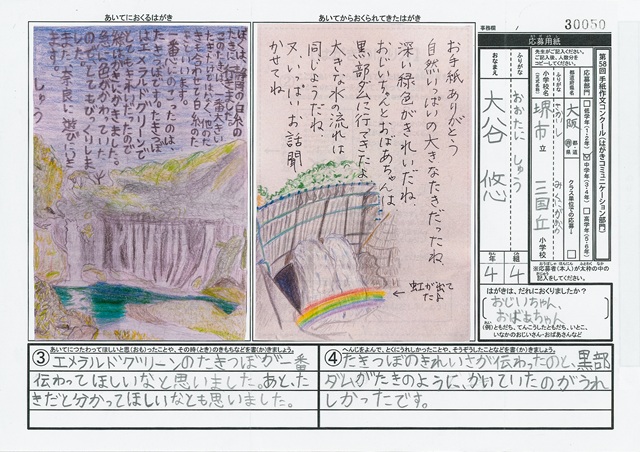 あいてにおくるはがき
ぼくは、静岡の白糸の
たきに行きました。
このたきは、一番大きい
一番心にのこったのは、
はエメラルドグリーンで
とてもきれいだったので
絵はがきにかきました。
色がかわっていた
のがとてもびっくりしま
した。
また、奈良に遊びにいき
ます。
しゅう
あいてからおくられてきたはがき
お手紙ありがとう
自然いっぱいの大きなたきだったね、
深い緑色がきれいだね。
おじいちゃんとおばあちゃんは、
黒部ダムに行てきたよ。
大きな水の流れは
同じようだね、
又、いっぱい、お話聞
かせてね。
←虹が出て
たよ
事務欄
30050
応募用紙
先生がご記入ください。
ご記入後、人数分を
コピーしてください。
第58回 手紙作文コンクール(はがきコミュニケーション部門)
応募部門
低学年(1・2年)
中学年(3・4年)
高学年(5・6年)
都道府県名
大阪
都・道
府・県
クラス単位での応募
ふりがな
小学校名
(正式名)
堺市
立
三国丘
小学校
ふりがな
おおたに しゅう
おなまえ
大谷 悠
4年
4組
※応募者(本人)が太枠の中の
記入をしてください。
はがきは、だれにおくりましたか?
おじいちゃん、
おばあちゃん
(例)ともだち、てんこうしたともだち、いとこ、
いなかのおじいさん・おばあさんなど
③ あいてにつたわってほしいと思(おも)ったことや、その時(とき)のきもちなどを書(か)きましょう。
エメラルドグリーンのたきつぼが一番
伝わってほしいなと思いました。あと、た
きだと分かってほしいなとも思いました。
④ へんじをよんで、とくにうれしかったことや、そうぞうしたことなどを書(か)きましょう。
たきつぼのきれいさが伝わったのと、黒部
ダムがたきのように、かいていたのがうれ
しかったです。